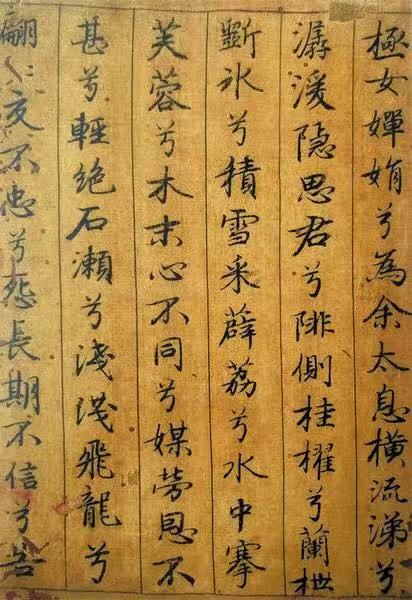 極女嬋娟兮為余太息橫流涕兮
潺湲隐思君兮陫側桂櫂兮蘭枻
斵氷兮積雪采薜荔兮水中搴
芙蓉兮木末心不同兮媒勞恩不
甚兮輕絕石瀨兮淺淺飛龍兮
翩〻交不忠兮怨長期不信兮告